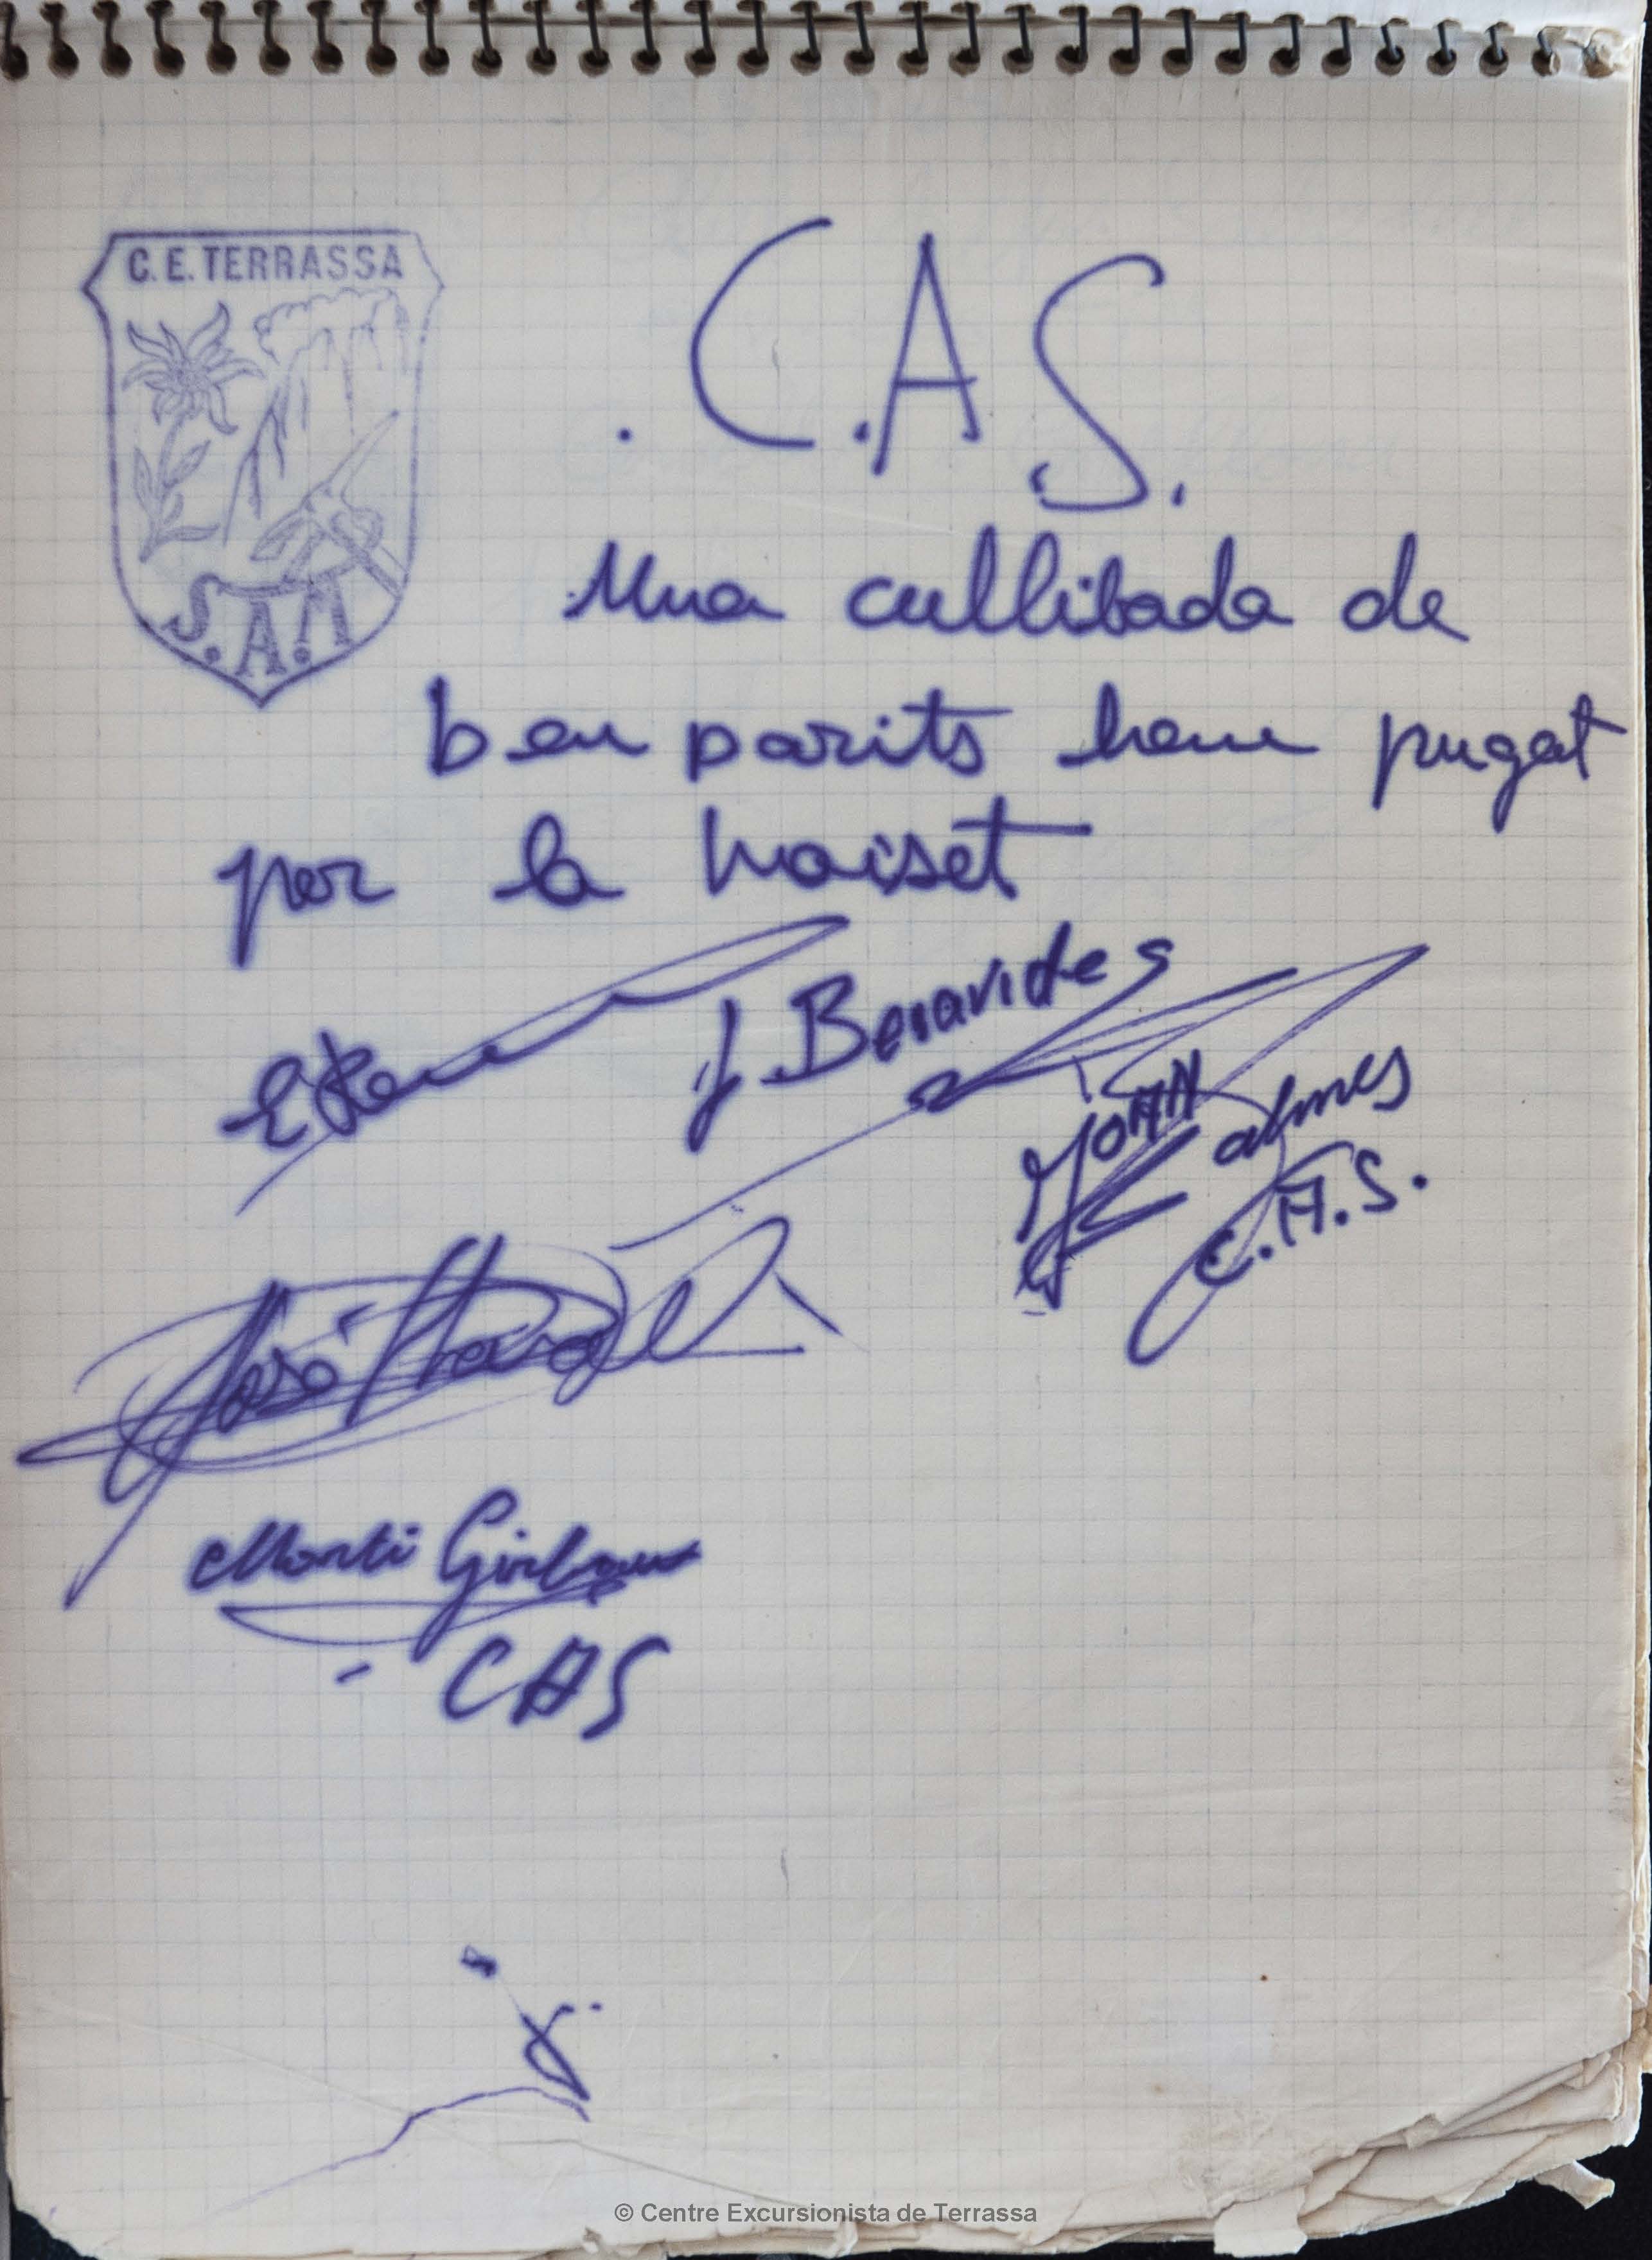 C. E. TERRASSA
S. A. M
. C. A. S.
Una cullibada de
ben parits hem pugat
per la
J. Benavides
JOAN
C.A.S.
José
Monti Girbau
- CAS
© Centre Excursionista de Terrassa